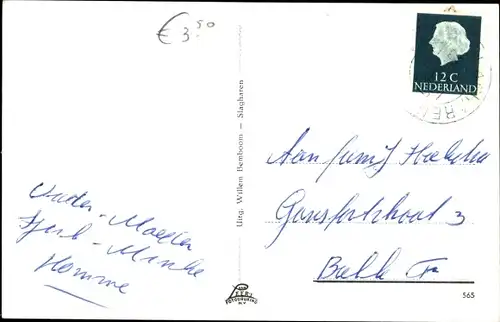 € 3.50
12 C
NEDERLAND
Uitg. Willem Bemboom — Slagharen
Aan fam. Hoekstra
3
Balk Fr
Vader - Moeder
Tjerk - Minke
Homme
FOTODRUKKERIJ
565